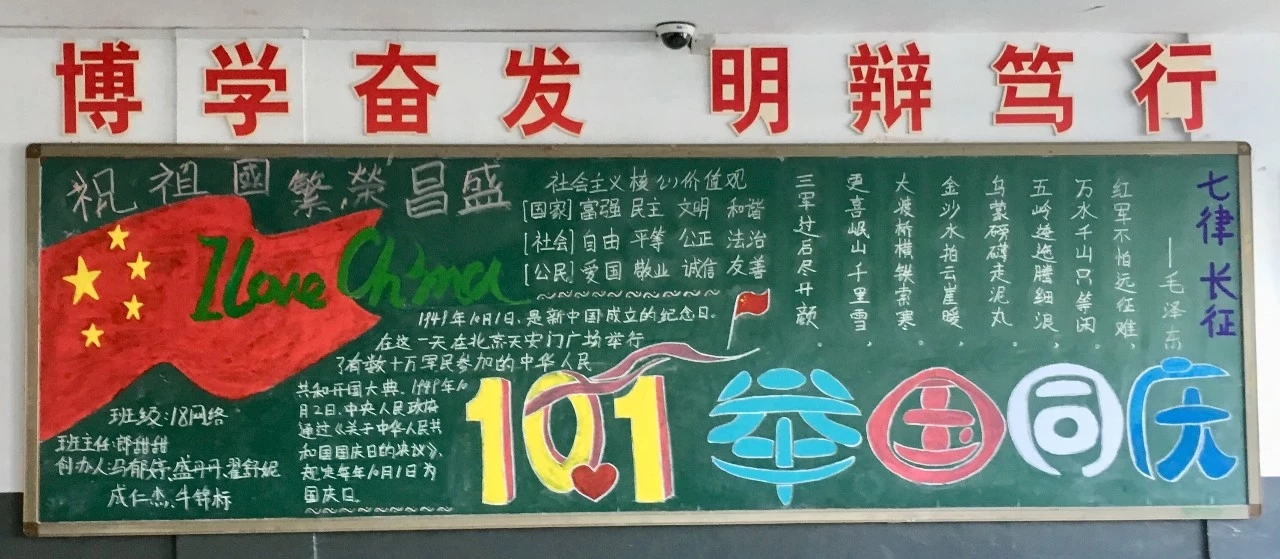 博学奋发 明辩笃行
祝祖國繁榮昌盛
I love China
社会主义核心价值观
[国家] 富强 民主 文明 和谐
[社会] 自由 平等 公正 法治
[公民] 爱国 敬业 诚信 友善
1949年10月1日,是新中国成立的纪念日。
在这一天在北京天安门广场举行
了有数十万军民参加的中华人民
共和开国大典.1949年10
月2日.中央人民政府
通过《关于中华人民共
和国国庆日的决议》,
规定每年10月1日为
国庆日。
班级:18网络
班主任:郭甜甜
创办人:马郁婷.盛丹丹.翟舒妮
成仁杰.牛锦标
10.1
举国同庆
七律 长征
——毛泽东
红军不怕远征难
万水千山只等闲
五岭逶迤腾细浪
乌蒙磅礴走泥丸
金沙水拍云崖暖
大渡桥横铁索寒
更喜岷山千里雪
三军过后尽开颜